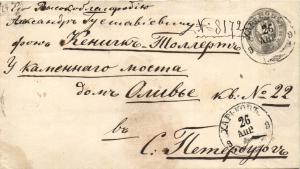 Его Высокоблагородію
Александру Густавовичу
фонъ Кенигъ Толлертъ
№ 8172
У каменнаго моста
домъ Оливье кв. № 22
въ
С. Петербургъ
ХАРЬКОВЪ
26
АПР
ХАРЬКОВЪ
26
АПР